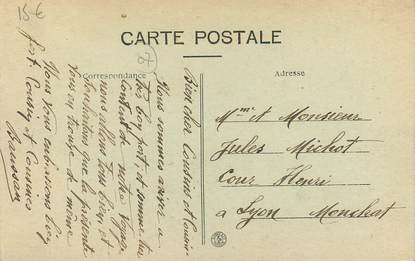 15€
CARTE POSTALE
Correspondance
Adresse
Bien cher Cousine et Cousin
Nous sommes arriver a
très bon port et somme très
content de notre voyage
nous allons tous bien et
souhaitons que la présente
vous en trouve de même
Nous vous embrassons bien
fort. Cousin et Cousines
Baussan
Mme et Monsieur
Jules Michot
Cour Henri
a Lyon Monchat